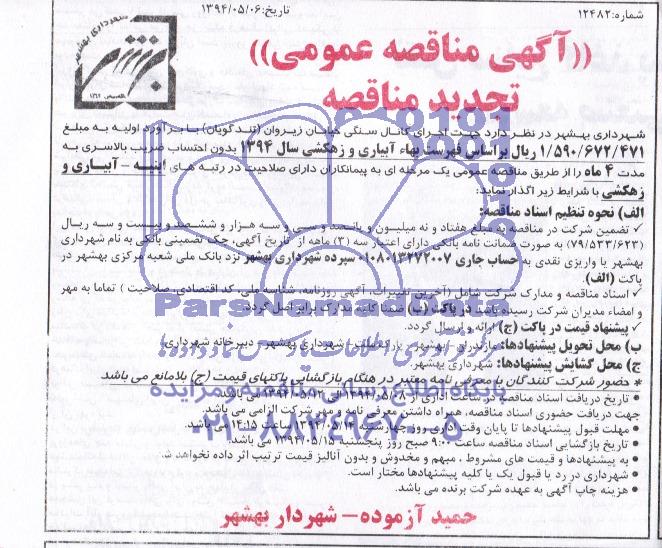 شماره: ۱۲۴۸۲
تاریخ: ۱۳۹۴/۰۵/۰۶
شهرداری بهشهر
((آگهی مناقصه عمومی))
تجدید مناقصه
شهرداری بهشهر در نظر دارد جهت اجرای کانال سنگی خیابان زیروان (تندگویان) با برآورد اولیه به مبلغ
۱/۵۹۰/۶۷۲/۴۷۱ ریال براساس فهرست بهاء آبیاری و زهکشی سال ۱۳۹۴ بدون احتساب ضریب بالاسری به
مدت ۴ ماه را از طریق مناقصه عمومی یک مرحله ای به پیمانکاران دارای صلاحیت در رتبه های ابنیه - آبیاری و
زهکشی با شرایط زیر واگذار نماید:
الف) نحوه تنظیم اسناد مناقصه:
✓ تضمین شرکت در مناقصه به مبلغ هفتاد و نه میلیون و پانصد و سی و سه هزار و ششصد و بیست و سه ریال
(۷۹/۵۳۳/۶۲۳) به صورت ضمانت نامه بانکی دارای اعتبار سه (۳) ماهه از تاریخ آگهی، چک تضمینی بانکی به نام شهرداری
بهشهر یا واریزی نقدی به حساب جاری ۰۱۰۸۰۱۳۲۷۲۰۰۷ سپرده شهرداری بهشهر نزد بانک ملی شعبه مرکزی بهشهر در
پاکت (الف).
✓ اسناد مناقصه و مدارک شرکت شامل (آخرین تغییرات، آگهی روزنامه، شناسه ملی، کد اقتصادی، صلاحیت) تماما به مهر
و امضاء مدیران شرکت رسیده باشد در پاکت (ب) ضمنا کلیه مدارک برابر اصل گردد.
✓ پیشنهاد قیمت در پاکت (ج) ارائه و ارسال گردد.
ب) محل تحویل پیشنهادها: مازندران - بهشهر - پارک ملت - شهرداری بهشهر - دبیرخانه شهرداری.
ج) محل گشایش پیشنهادها: شهرداری بهشهر.
* حضور شرکت کنندگان با معرفی نامه معتبر در هنگام بازگشایی پاکتهای قیمت (ج) بلامانع می باشد
• تاریخ دریافت اسناد مناقصه در ساعت اداری از ۱۳۹۴/۰۵/۰۸ می باشد.
جهت دریافت حضوری اسناد مناقصه، همراه داشتن معرفی نامه و مهر شرکت الزامی می باشد.
• مهلت قبول پیشنهادها تا پایان وقت اداری روز چهارشنبه ۱۳۹۴/۰۵/۱۴ ساعت ۱۴:۱۵ می باشد.
• تاریخ بازگشایی اسناد مناقصه ساعت ۹:۰۰ صبح روز پنجشنبه ۱۳۹۴/۰۵/۱۵ می باشد.
• به پیشنهادها و قیمت های مشروط، مبهم و مخدوش و بدون آنالیز قیمت ترتیب اثر داده نخواهد شد.
• شهرداری در رد یا قبول یک یا کلیه پیشنهادها مختار است.
• هزینه چاپ آگهی به عهده شرکت برنده می باشد.
حمید آزموده - شهردار بهشهر
ParsNamadData
پایگاه اطلاع رسانی مناقصه و مزایده
۰۲۱-۸۸۳۴۹۶۷۰-۵